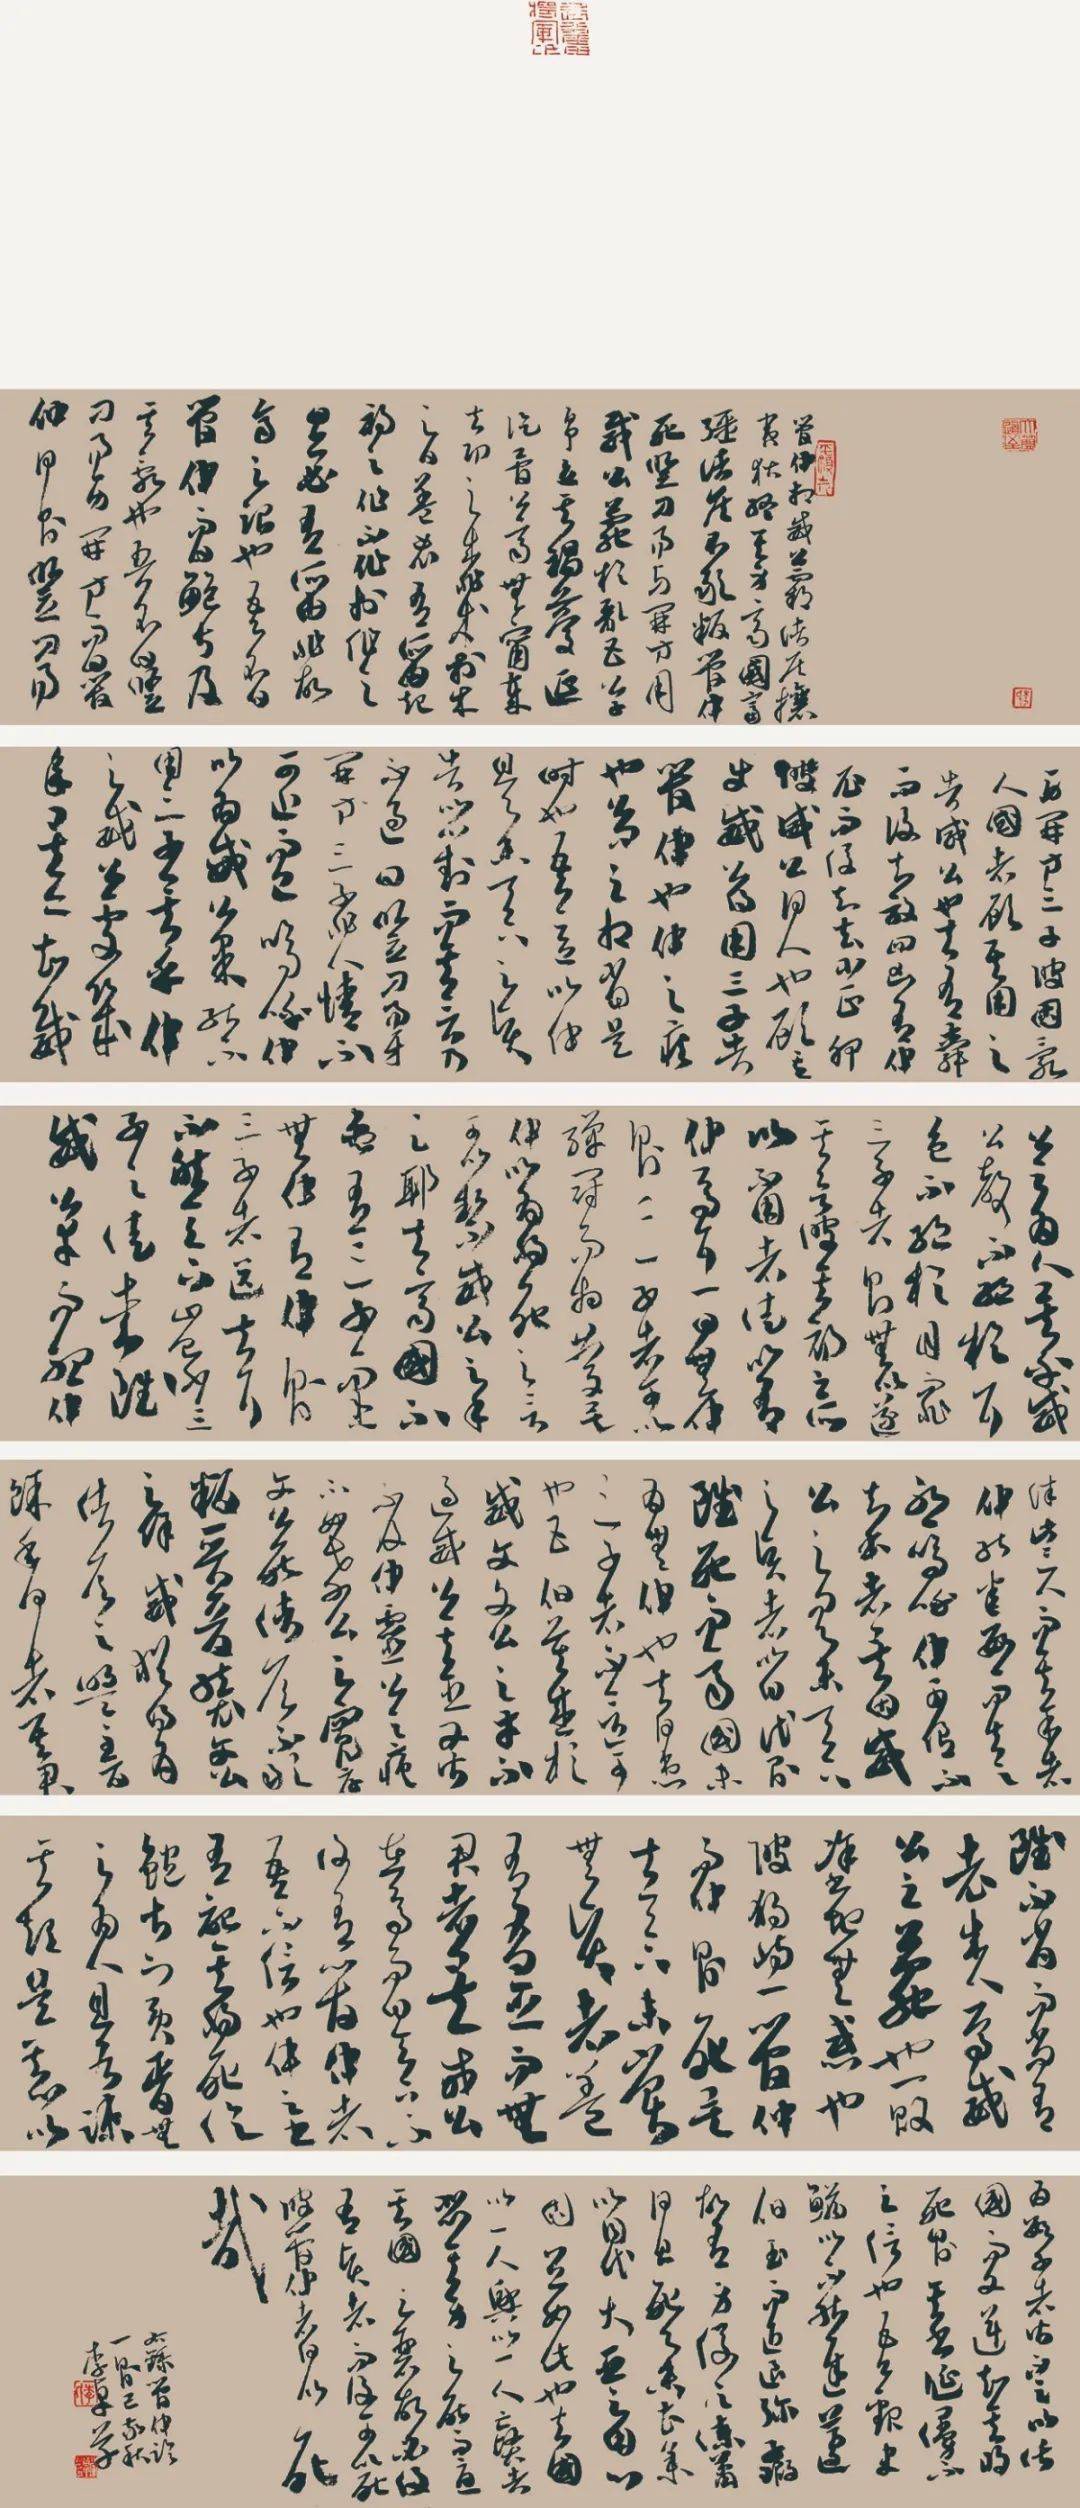 管仲相威公霸諸侯攘
夷狄終其身齊國富
強諸侯不敢叛管仲
死豎刁易牙開方用
威公薨於亂五公子
爭立其禍蔓延
訖簡公齊無寧歲
夫功之成非成於成
之日蓋必有所由起
禍之作不作於作之
日亦必有所由兆故
齊之治也吾不曰
管仲而曰鮑叔及
其亂也吾不曰豎
刁易牙開方而曰管
仲何則豎刁易
牙開方三子彼固亂
人國者顧其用之
者威公也夫有舜
而後知放四凶有仲
尼而後知去少正卯
彼威公何人也顧其
使威公用三子者
管仲也仲之疾
也公問之相當是
時也吾意以仲
且舉天下之賢
者以對而其言乃
不過曰豎刁易牙
開方三子非人情不
可近而已嗚呼仲
以為威公果能不
用三子矣乎仲
與威公處幾
年矣亦知威
公之為人矣乎威
公聲不絕於耳
色不絕於目而非
三子者則無以遂
其欲彼其初之所
以不用者徒以有
仲焉耳一日無仲
則三子者可以
彈冠而相慶矣
仲以為將死之言
可以縶威公之手足
耶夫齊國不
患有三子而患
無仲有仲則
三子者三匹夫耳
不然天下豈少三
子之徒哉雖
威公幸而聽仲
誅此三人而其餘者
仲能悉數而去之
邪嗚呼仲可謂不
知本者矣因威
公之問舉天下
之賢者以自代則仲
雖死而齊國未
為無仲也夫何患
三子者不言可
也五伯莫盛於
威文文公之才不
過威公其臣又皆
不及仲靈公之虐
不如孝公之寬厚
文公死諸侯不敢
叛晉晉襲文公
之餘威猶得為
諸侯之盟主百
餘年何者其君
雖不肖而尚有
老成人焉威
公之薨也一敗
塗地無惑也
彼獨恃一管仲
而仲則死矣
夫天下未嘗
無賢者蓋
有有臣而無
君者矣威公
在焉而曰天下不
復有管仲者
吾不信也仲之書
有記其將死論
鮑叔賓胥無
之為人且各疏
其短是其心以
為數子者皆不足以託
國而又逆知其將
死則其書誕謾不足
之信也吾觀史
鰌以不能進蘧
伯玉而退彌子瑕
故有身後之諫蕭
何且死舉曹參
以自代大臣之用心
固宜如此也夫國
以一人興以一人亡賢者
不悲其身之死而憂
其國之衰故必復
有賢者而後可以死
彼管仲者何以死
哉
蘇管仲論
一則己亥秋